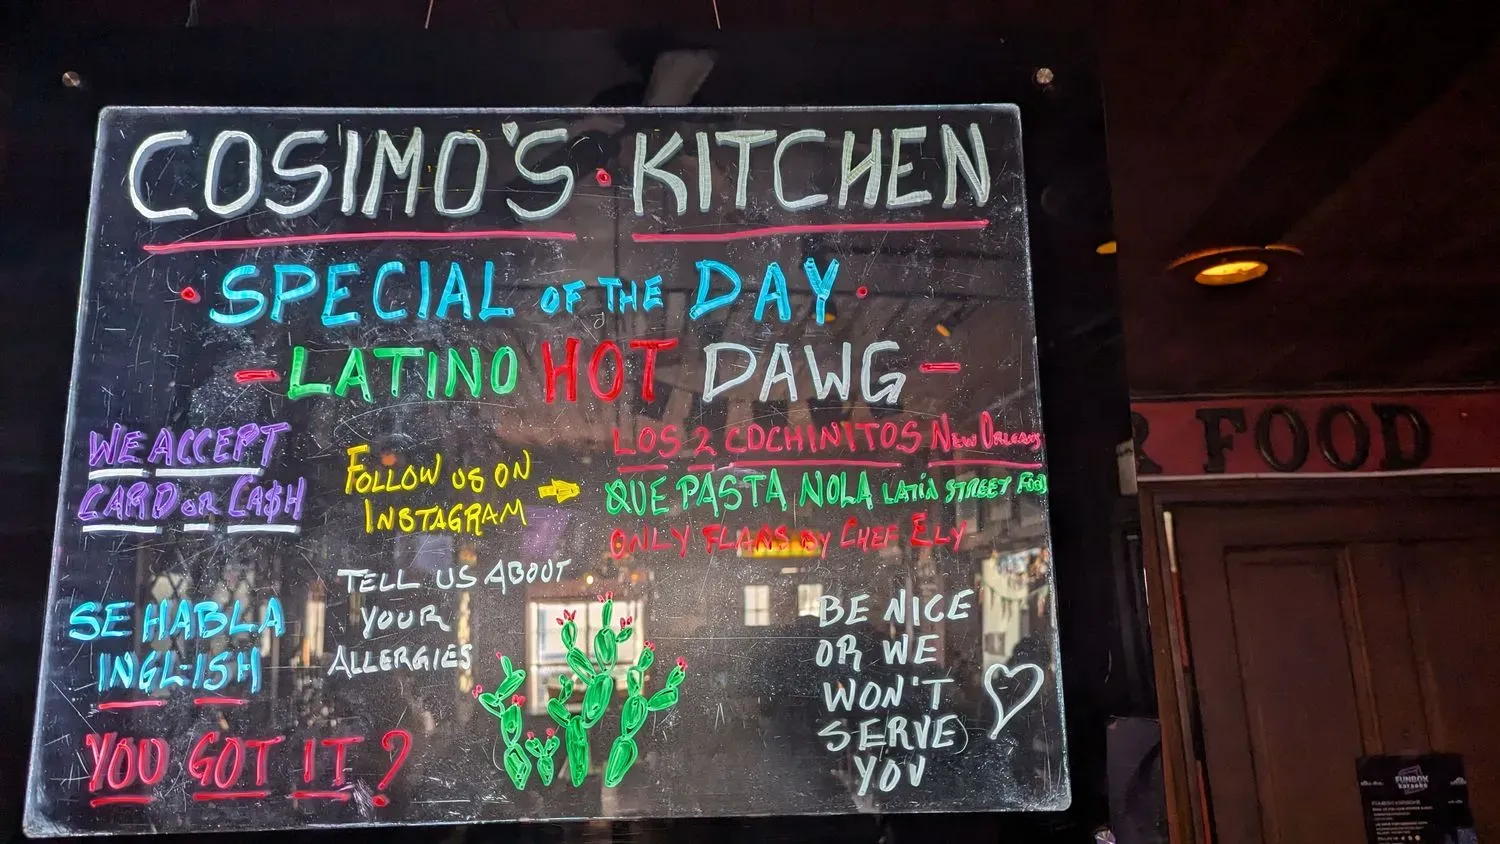 COSIMO'S • KITCHEN
• SPECIAL OF THE DAY •
- LATINO HOT DAWG -
WE ACCEPT
CARD OR CA$H
FOLLOW US ON
INSTAGRAM
LOS 2 COCHINITOS NEW ORLEANS
QUE PASTA NOLA LATIN STREET FOOD
ONLY FLANS BY CHEF ELY
TELL US ABOUT
YOUR
ALLERGIES
SE HABLA
INGL-ISH
YOU GOT IT?
BE NICE
OR WE
WON'T
SERVE
YOU
R FOOD
FUNBOX
karaoke